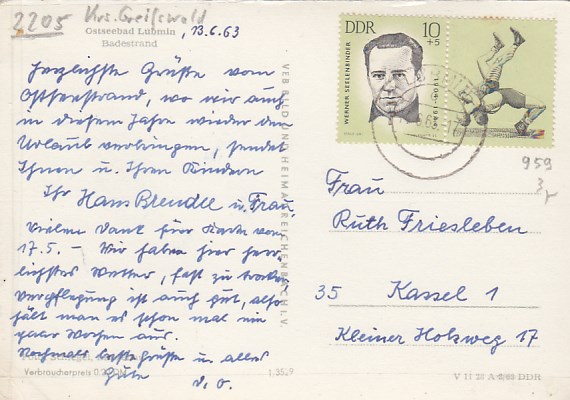 2205 Krs. Greifswald
Ostseebad Lubmin
Badestrand
13.6.63
Herzlichste Grüße vom
Ostseestrand, wo wir auch
in diesem Jahre wieder den
Urlaub verbringen, sendet
Ihnen u. Ihren Kindern
Ihr Hans Brendle u. Frau.
Vielen Dank für Karte vom
17.5. – Wir haben hier herr-
lichstes Wetter, fast zu trocken
Verpflegung ist auch gut, also
hält man es schon mal ein
paar Wochen aus.
Nochmals beste Grüße u. alles
Gute d. O.
Verbraucherpreis 0.20 DM
1 3529
VEB BILD UND HEIMAT REICHENBACH I. V.
DDR 10
+5
WERNER SEELENBINDER
1904-1944
959
Frau
Ruth Friesleben
35 Kassel 1
Kleiner Holzweg 17
V 11 28 A 6/63 DDR